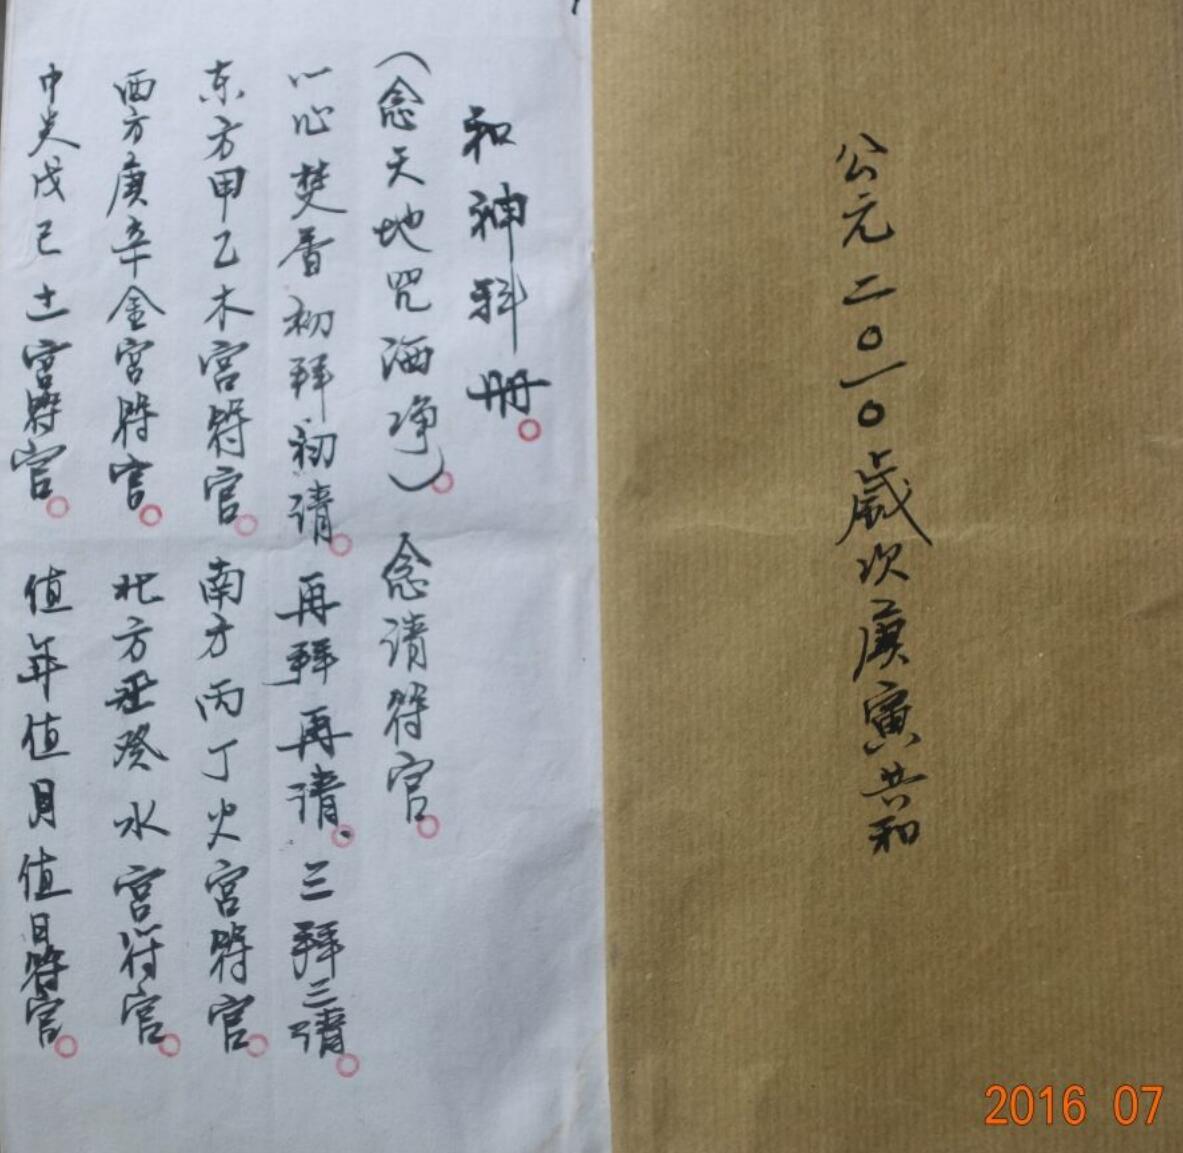 公元二〇一〇歲次庚寅共和
和神科册。
（念天地咒洒净）。念请符官。
一心焚香初拜初请。再拜再请。三拜三请。
东方甲乙木宫符官。南方丙丁火宫符官。
西方庚辛金宫符官。北方壬癸水宫符官。
中央戊己土宫符官。值年值月值日符官。
2016 07